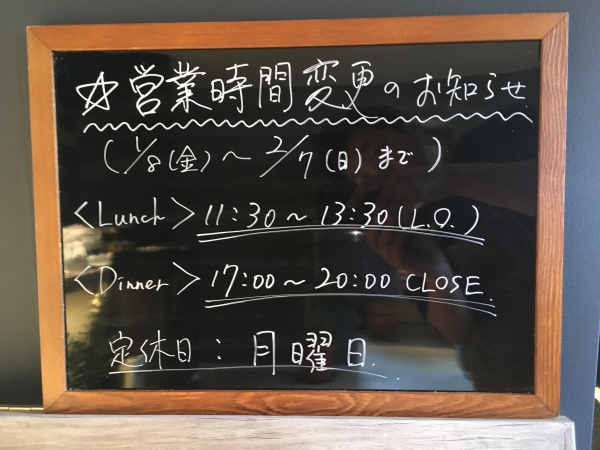 ☆営業時間変更のお知らせ
(1/8(金)～2/7(日)まで)
<Lunch> 11:30～13:30(L.O.)
<Dinner> 17:00～20:00 CLOSE
定休日:月曜日.